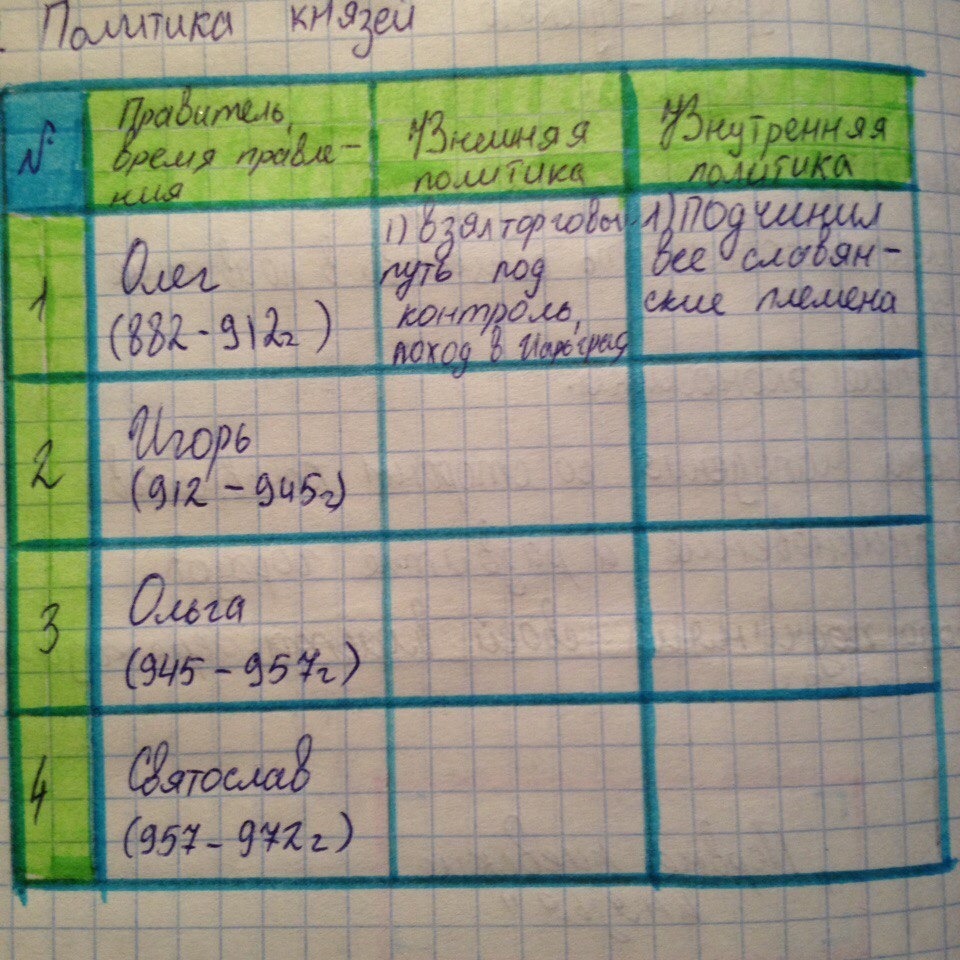 Политика князей
№
Правитель,
время правле-
ния
Внешняя
политика
Внутренняя
политика
1
Олег
(882-912г)
1) Взял торговы
путь под
контроль,
поход в Царьград
1) Подчинил
все славян-
ские племена
2
Игорь
(912-945г)
3
Ольга
(945-957г)
4
Святослав
(957-972г)